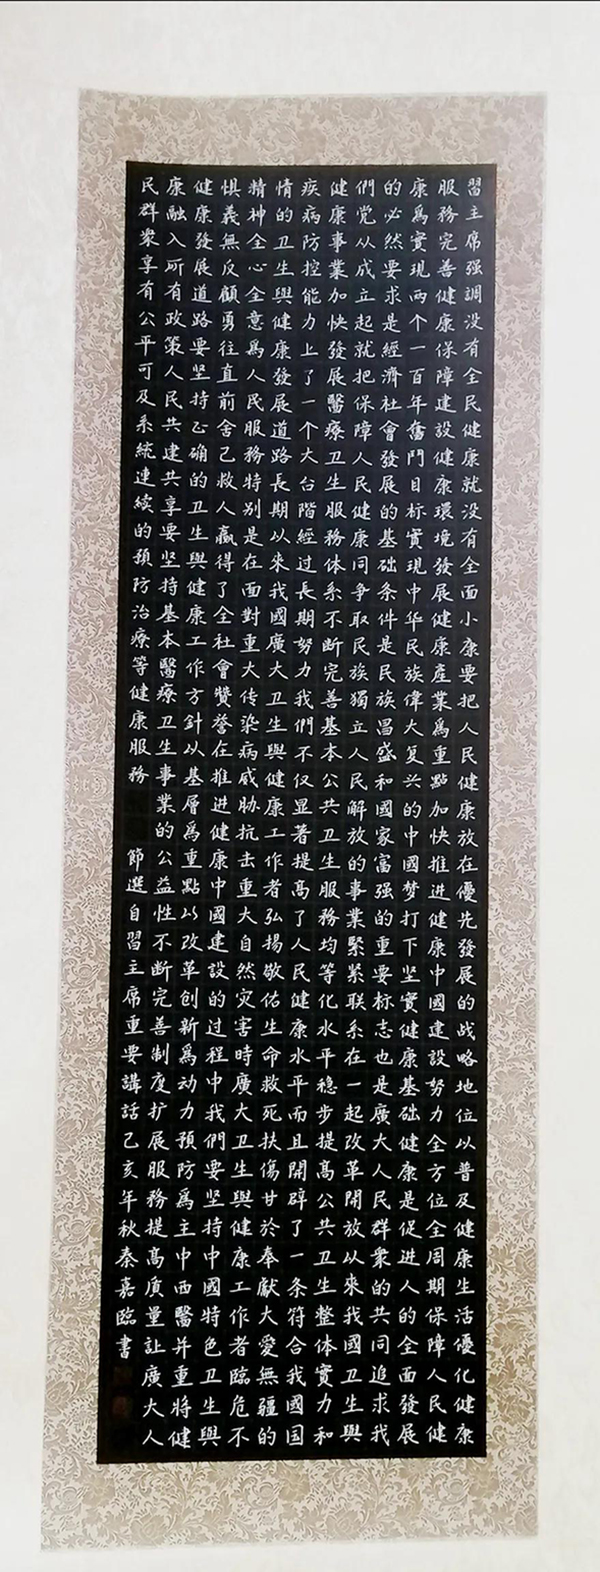 習主席强調没有全民健康就没有全面小康要把人民健康放在優先發展的战略地位以普及健康生活優化健康
服務完善健康保障建設健康環境發展健康產業爲重點加快推進健康中國建設努力全方位全周期保障人民健
康爲實現两个一百年奮鬥目标實現中华民族偉大复兴的中國梦打下坚實健康基础健康是促進人的全面發展
的必然要求是經濟社會發展的基础条件是民族昌盛和國家富强的重要标志也是廣大人民群衆的共同追求我
們党从成立起就把保障人民健康同争取民族獨立人民解放的事業緊紧联系在一起改革開放以來我國卫生與
健康事業加快發展醫療卫生服務体系不断完善基本公共卫生服務均等化水平稳步提高公共卫生整体實力和
疾病防控能力上了一个大台階經过長期努力我們不仅显著提高了人民健康水平而且開辟了一条符合我國国
情的卫生與健康發展道路長期以來我國廣大卫生與健康工作者弘揚敬佑生命救死扶傷甘於奉獻大爱無疆的
精神全心全意爲人民服務特别是在面對重大传染病威胁抗击重大自然灾害時廣大卫生與健康工作者臨危不
惧義無反顧勇往直前舍己救人贏得了全社會赞誉在推進健康中國建設的过程中我們要坚持中國特色卫生與
健康發展道路要坚持正确的卫生與健康工作方針以基層爲重點以改革创新爲动力預防爲主中西醫并重将健
康融入所有政策人民共建共享要坚持基本醫療卫生事業的公益性不断完善制度扩展服務提高质量让廣大人
民群衆享有公平可及系統連续的預防治療等健康服務
節選自習主席重要講話己亥年秋秦嘉臨書